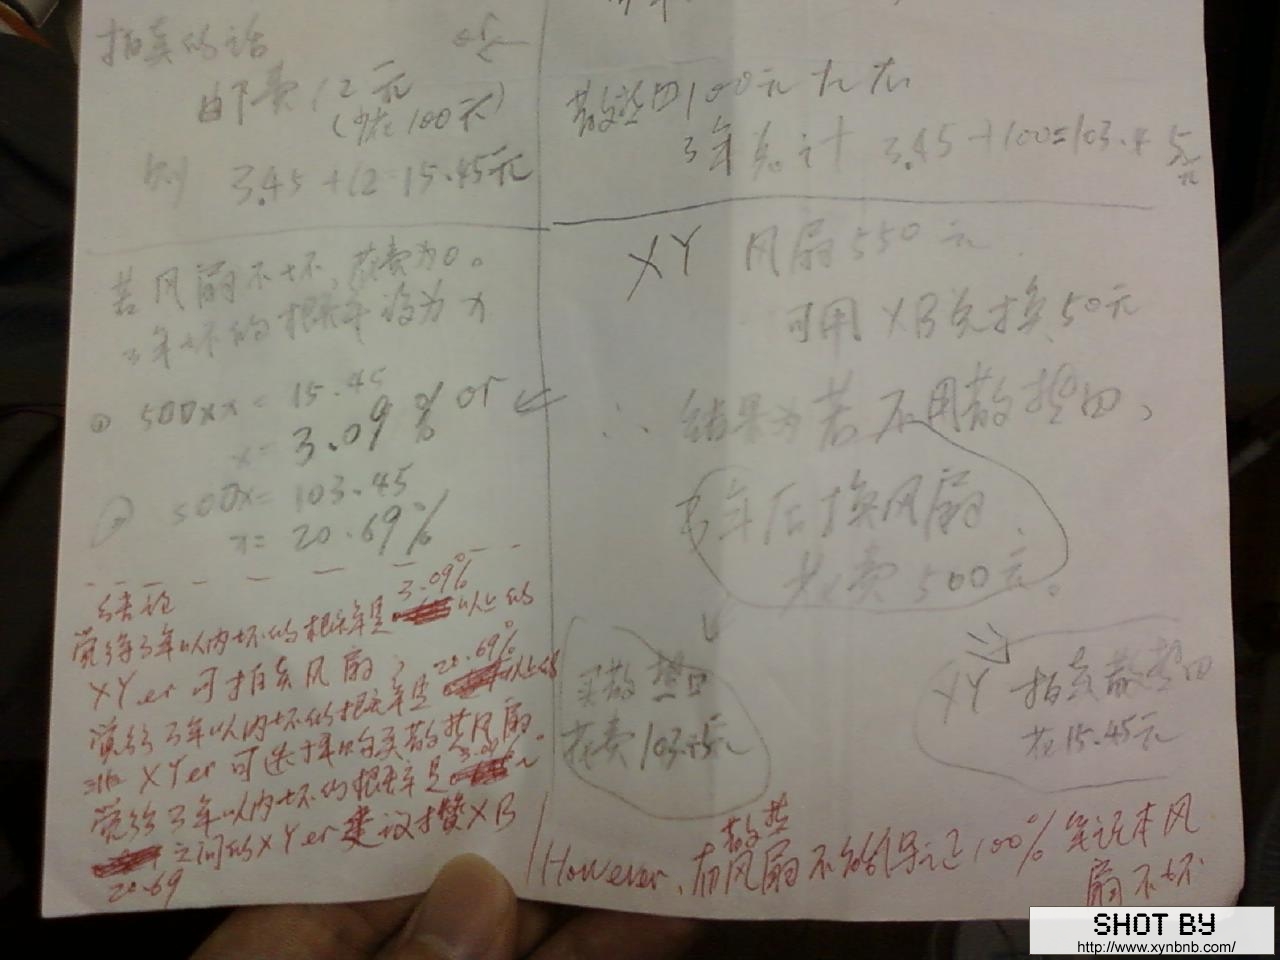 拍卖的话
or
邮费12元
(少花100元)
则 3.45+12=15.45元
散热口100元左右
3年总计 3.45+100=103.45元
若风扇不坏,花费为0。
3年坏的概率设为x
① 500×x=15.45
x=3.09% or
② 500x=103.45
x=20.69%
XY 风扇550元
可用XB兑换50元
∴ 结果为若不用散热口、
3年后换风扇
花费500元。
买散热口
花费103.45元
XY 拍卖散热口
花15.45元
结论
3.09%
觉得3年以内坏的概率是 以上的
XYer可拍卖风扇;
20.69%
觉得3年以内坏的概率是 以上的
非XYer可选择购买散热风扇。
3.09%
觉得3年以内坏的概率是 ~
之间的XYer建议攒XB
20.69
散热
However、有风扇不能保证100%笔记本风
扇不坏
SHOT BY
http://www.xynbnb.com/